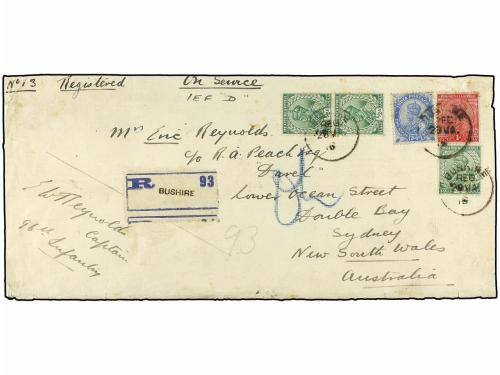 No 13 Registered On Service
"IEF D"
Mrs Eric Reynolds.
c/o R. A. Peach Esq
"Davel"
Lower Ocean Street
Double Bay
Sydney
New South Wales
Australia
R BUSHIRE 93
93
Reynolds
Captain
96th Infantry
BUSHIRE
REG
16